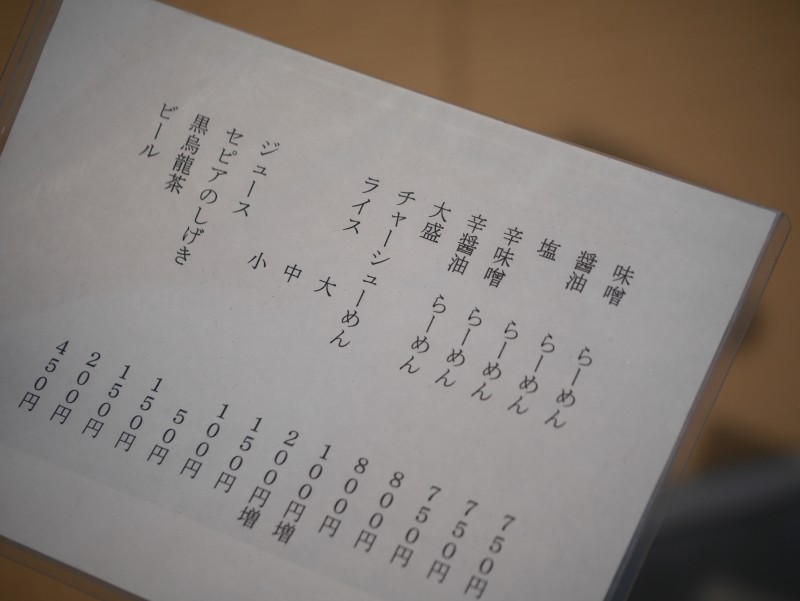 味噌 らーめん 750円
醤油 らーめん 750円
塩 らーめん 750円
辛味噌 らーめん 800円
辛醤油 らーめん 800円
大盛 100円
チャーシューめん 200円増
ライス 大 150円増
中 100円
小 50円
ジュース 150円
セピアのしげき 150円
黒烏龍茶 200円
ビール 450円